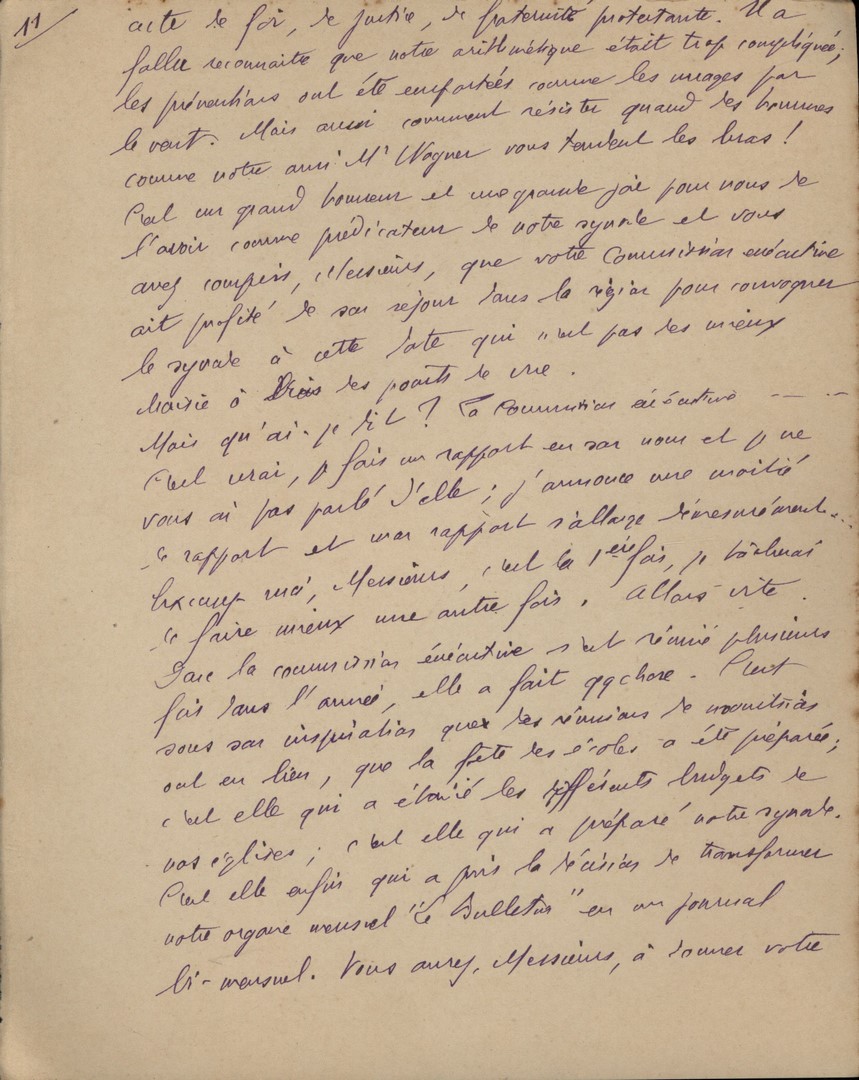 11
acte de foi, de justice, de fraternité protestante. Il a
fallu reconnaitre que notre arithmétique était trop compliquée ;
les préventions ont été emportées comme les nuages par
le vent. Mais aussi comment résister quand des hommes
comme notre ami Mr Wagner vous tendent les bras !
C'est un grand honneur et une grande joie pour nous de
l'avoir comme prédicateur de notre synode et vous
avez compris, Messieurs, que votre Commission exécutive
ait profité de son séjour dans la région pour convoquer
le synode à cette date qui n'est pas des mieux
choisie à des points de vue.
Mais qu'ai-je dit ? La Commission exécutive — — —
C'est vrai, je fais un rapport en son nom et je ne
vous ai pas parlé d'elle ; j'annonce une moitié
de rapport et mon rapport s'allonge démesurément...
Excusez moi, Messieurs, c'est la 1ère fois, je tâcherai
de faire mieux une autre fois. Allons vite.
Donc la commission exécutive s'est réunie plusieurs
fois dans l'année, elle a fait qqchose. C'est
sous son inspiration que des réunions de
ont eu lieu, que la fête des écoles a été préparée ;
c'est elle qui a étudié les différents budgets de
nos églises ; c'est elle qui a préparé notre synode.
C'est elle enfin qui a pris la décision de transformer
notre organe mensuel "Le Bulletin" en un journal
bi-mensuel. Vous aurez, Messieurs, à donner votre